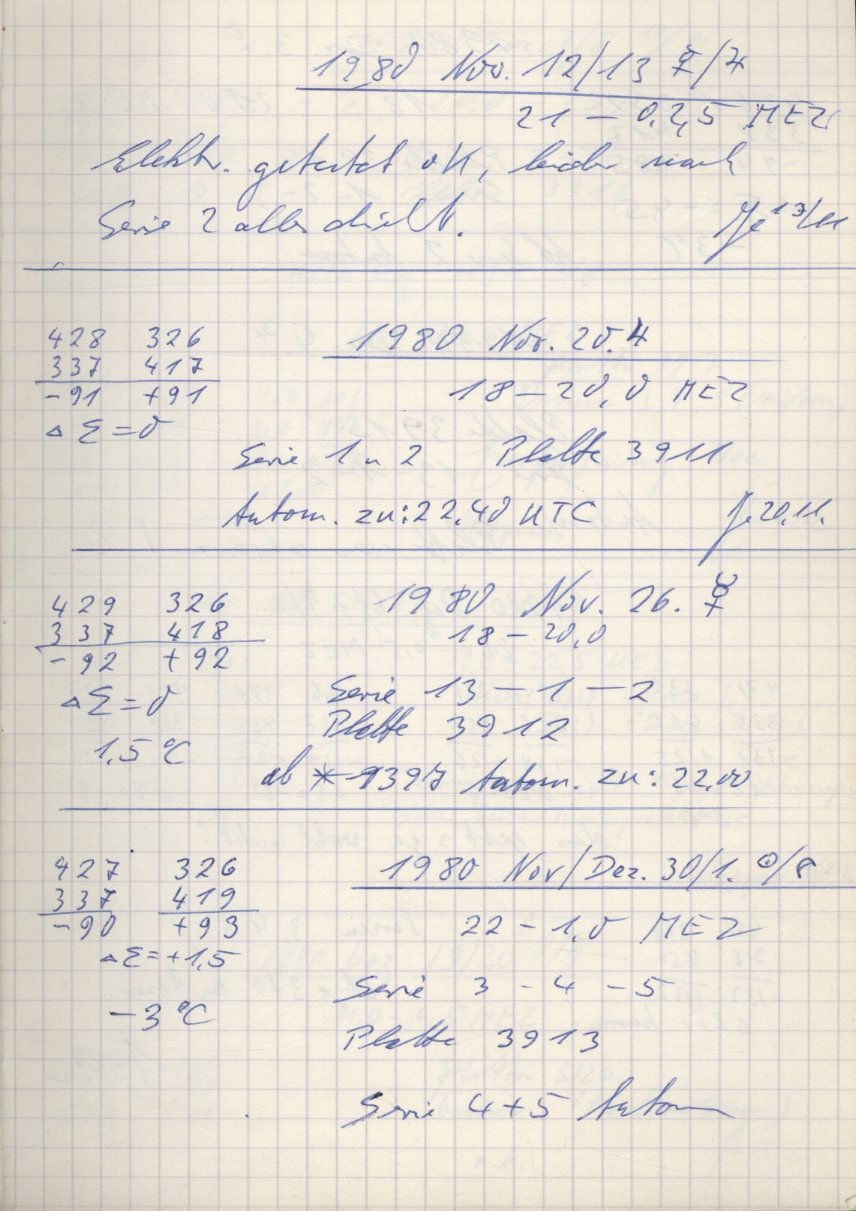 1980 Nov. 12/13 ☿/♃
21 – 0.25 MEZ
Elektr. getestet OK, leider nach
Serie 2 alles dicht. 13/11
428 326 1980 Nov. 20. ♃
337 417
-91 +91 18 – 20,0 MEZ
Δ Σ = 0
Serie 1 u 2 Platte 3911
Autom. zu: 22,40 UTC 20.11.
429 326 1980 Nov. 26. ☿
337 418 18 – 20,0
-92 +92
Δ Σ = 0 Serie 13 – 1 – 2
Platte 3912
1,5 °C
ab * 9397 Autom. zu: 22,00
427 326 1980 Nov/Dez. 30/1. ☉/
337 419
-90 +93 22 – 1,0 MEZ
Δ Σ = +1,5
Serie 3 – 4 – 5
-3 °C
Platte 3913
Serie 4+5 Autom